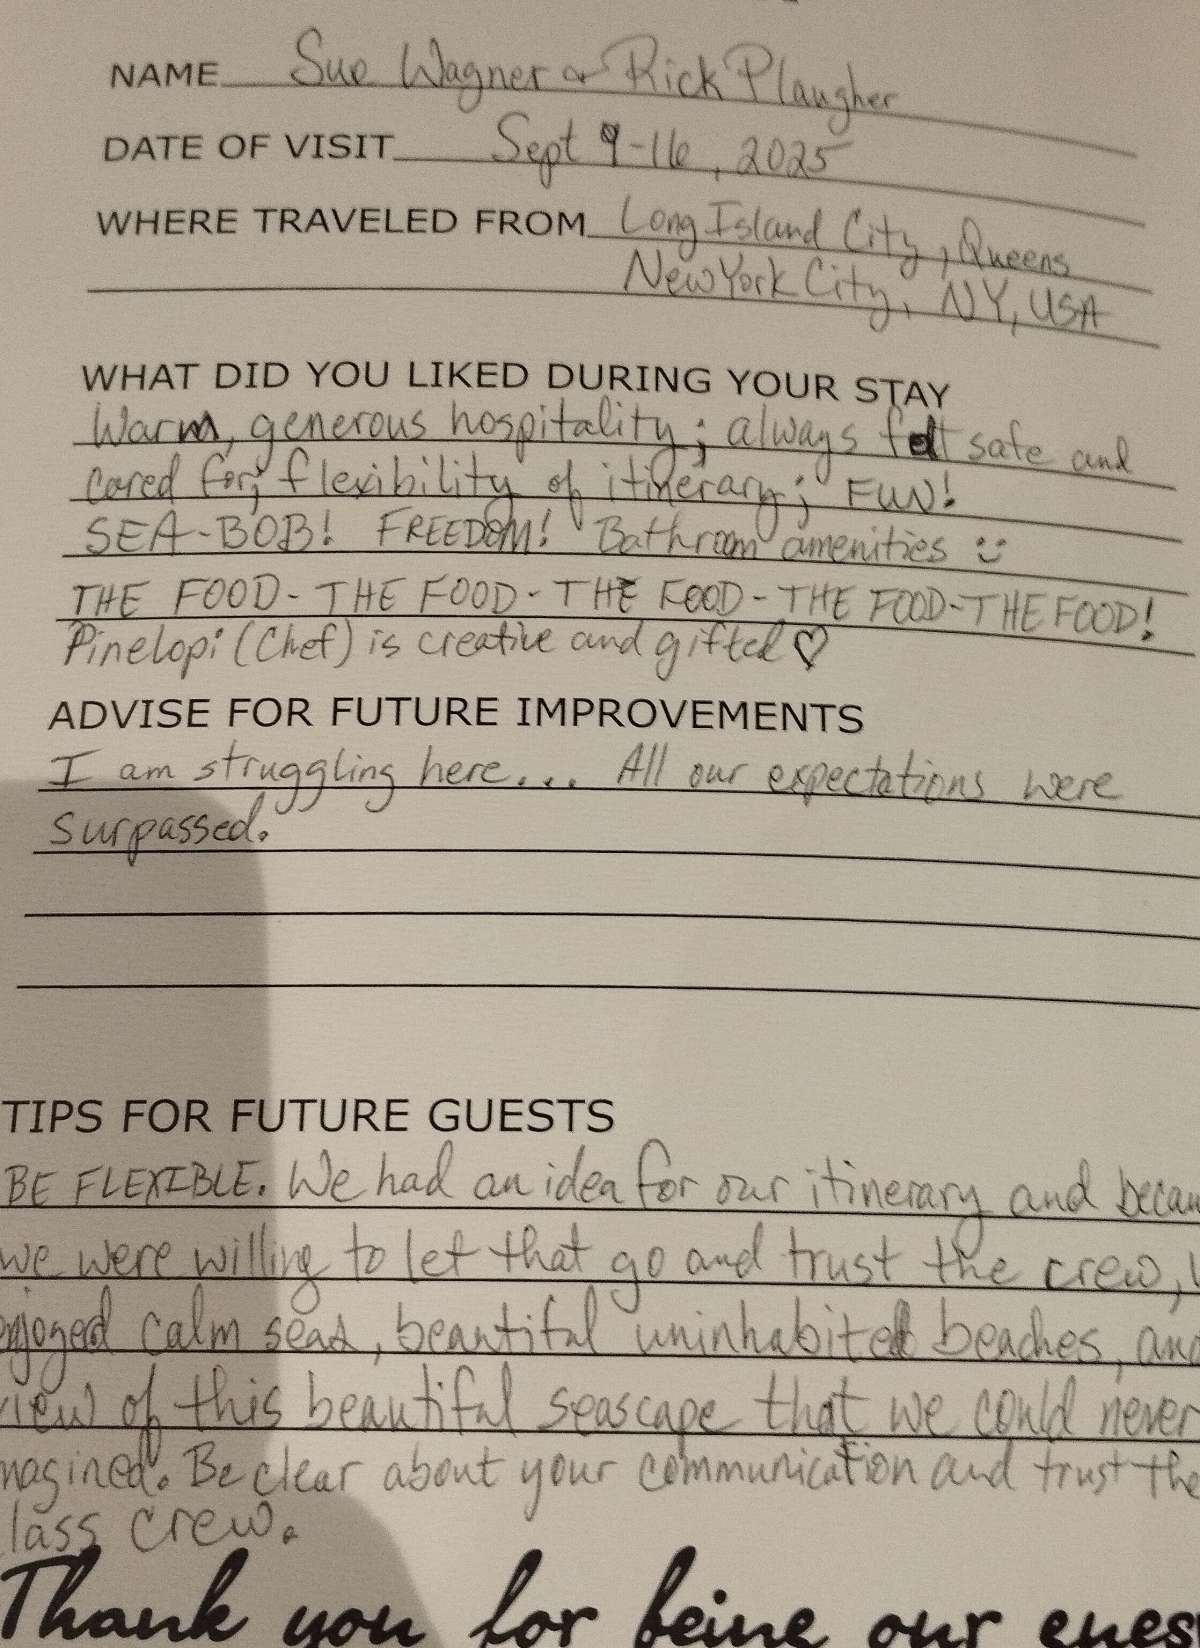 NAME Sue Wagner & Rick Plaugher
DATE OF VISIT Sept 9-16, 2025
WHERE TRAVELED FROM Long Island City, Queens
New York City, NY, USA
WHAT DID YOU LIKED DURING YOUR STAY
Warm, generous hospitality; always felt safe and
cared for; flexibility of itinerary; FUN!
SEA-BOB! FREEDOM! Bathroom amenities :)
THE FOOD - THE FOOD - THE FOOD - THE FOOD - THE FOOD!
Pinelopi (Chef) is creative and gifted ♡
ADVISE FOR FUTURE IMPROVEMENTS
I am struggling here... All our expectations were
surpassed.
TIPS FOR FUTURE GUESTS
BE FLEXIBLE. We had an idea for our itinerary and becau
we were willing to let that go and trust the crew,
njoyed calm seas, beautiful uninhabited beaches, and
view of this beautiful seascape that we could never
magined. Be clear about your communication and trust the
lass crew.
Thank you for being our gues